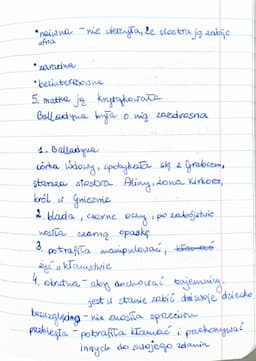 * naiwna - nie wierzyła, że siostra ją zabije
ufna
* zaradna
* bezinteresowna
5. matka ją krytykowała
Balladyna była o nią zazdrosna
1. Balladyna
córka wdowy, spotykała się z Grabcem,
starsza siostra Aliny, żona Kirkora,
król w Gnieznie
2. blada, czarne oczy, po zabójstwie
nosiła czarną opaskę
3. potrafiła manipulować,
żyć w kłamstwie
4. okrutna - aby dochować tajemnicy
jest w stanie zabić dziecko
bezwzględna - nie znosiła sprzeciwu
przebiegła - potrafiła kłamać i przekonywać
innych do swojego zdania